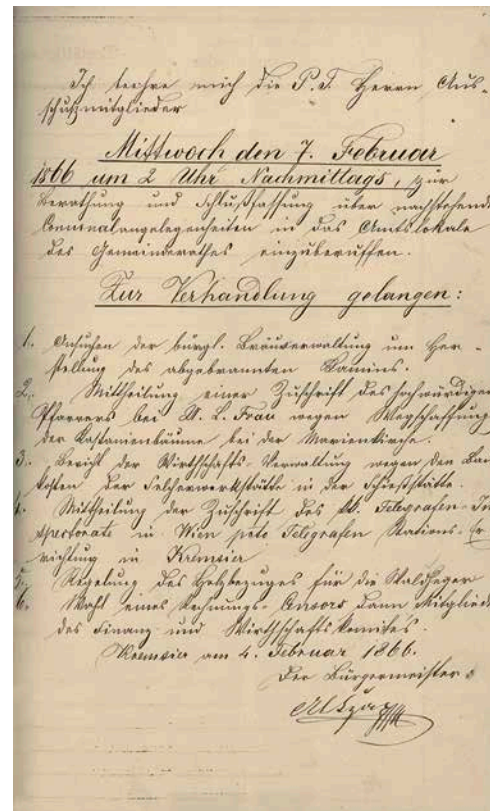 Ich beehre mich die P. T. Herrn Aus-
schußmitglieder
Mittwoch den 7. Februar
1866 um 2 Uhr Nachmittags, zur
Berathung und Schlußfassung über nachstehende
Communalangelegenheiten in das Amtslokale
des Gemeinderathes einzuberuffen.
Zur Verhandlung gelangen:
1. Ansuchen der bürgl. Bräuverwaltung um Her-
stellung des abgebrannten Kamins.
2. Mittheilung einer Zuschrift des hochwürdigen
Pfarrers bei U. L. Frau wegen Wegschaffung
der Kastanienbäume bei der Marienkirche.
3. Bericht der Wirthschafts-Verwaltung wegen den Bau
kosten der in der Schießstätte.
4. Mittheilung der Zuschrift des Telegrafen-In
spectorats in Wien pcto Telegrafen Stations-Er
richtung in Kremsier
5. Regelung des Holzbezuges für die Waldheger
6. Wahl eines Rechnungs-Censors dann Mitglieder
des Finanz- und Wirthschaftskomites.
Kremsier am 4. Februar 1866.
Der Bürgermeister: